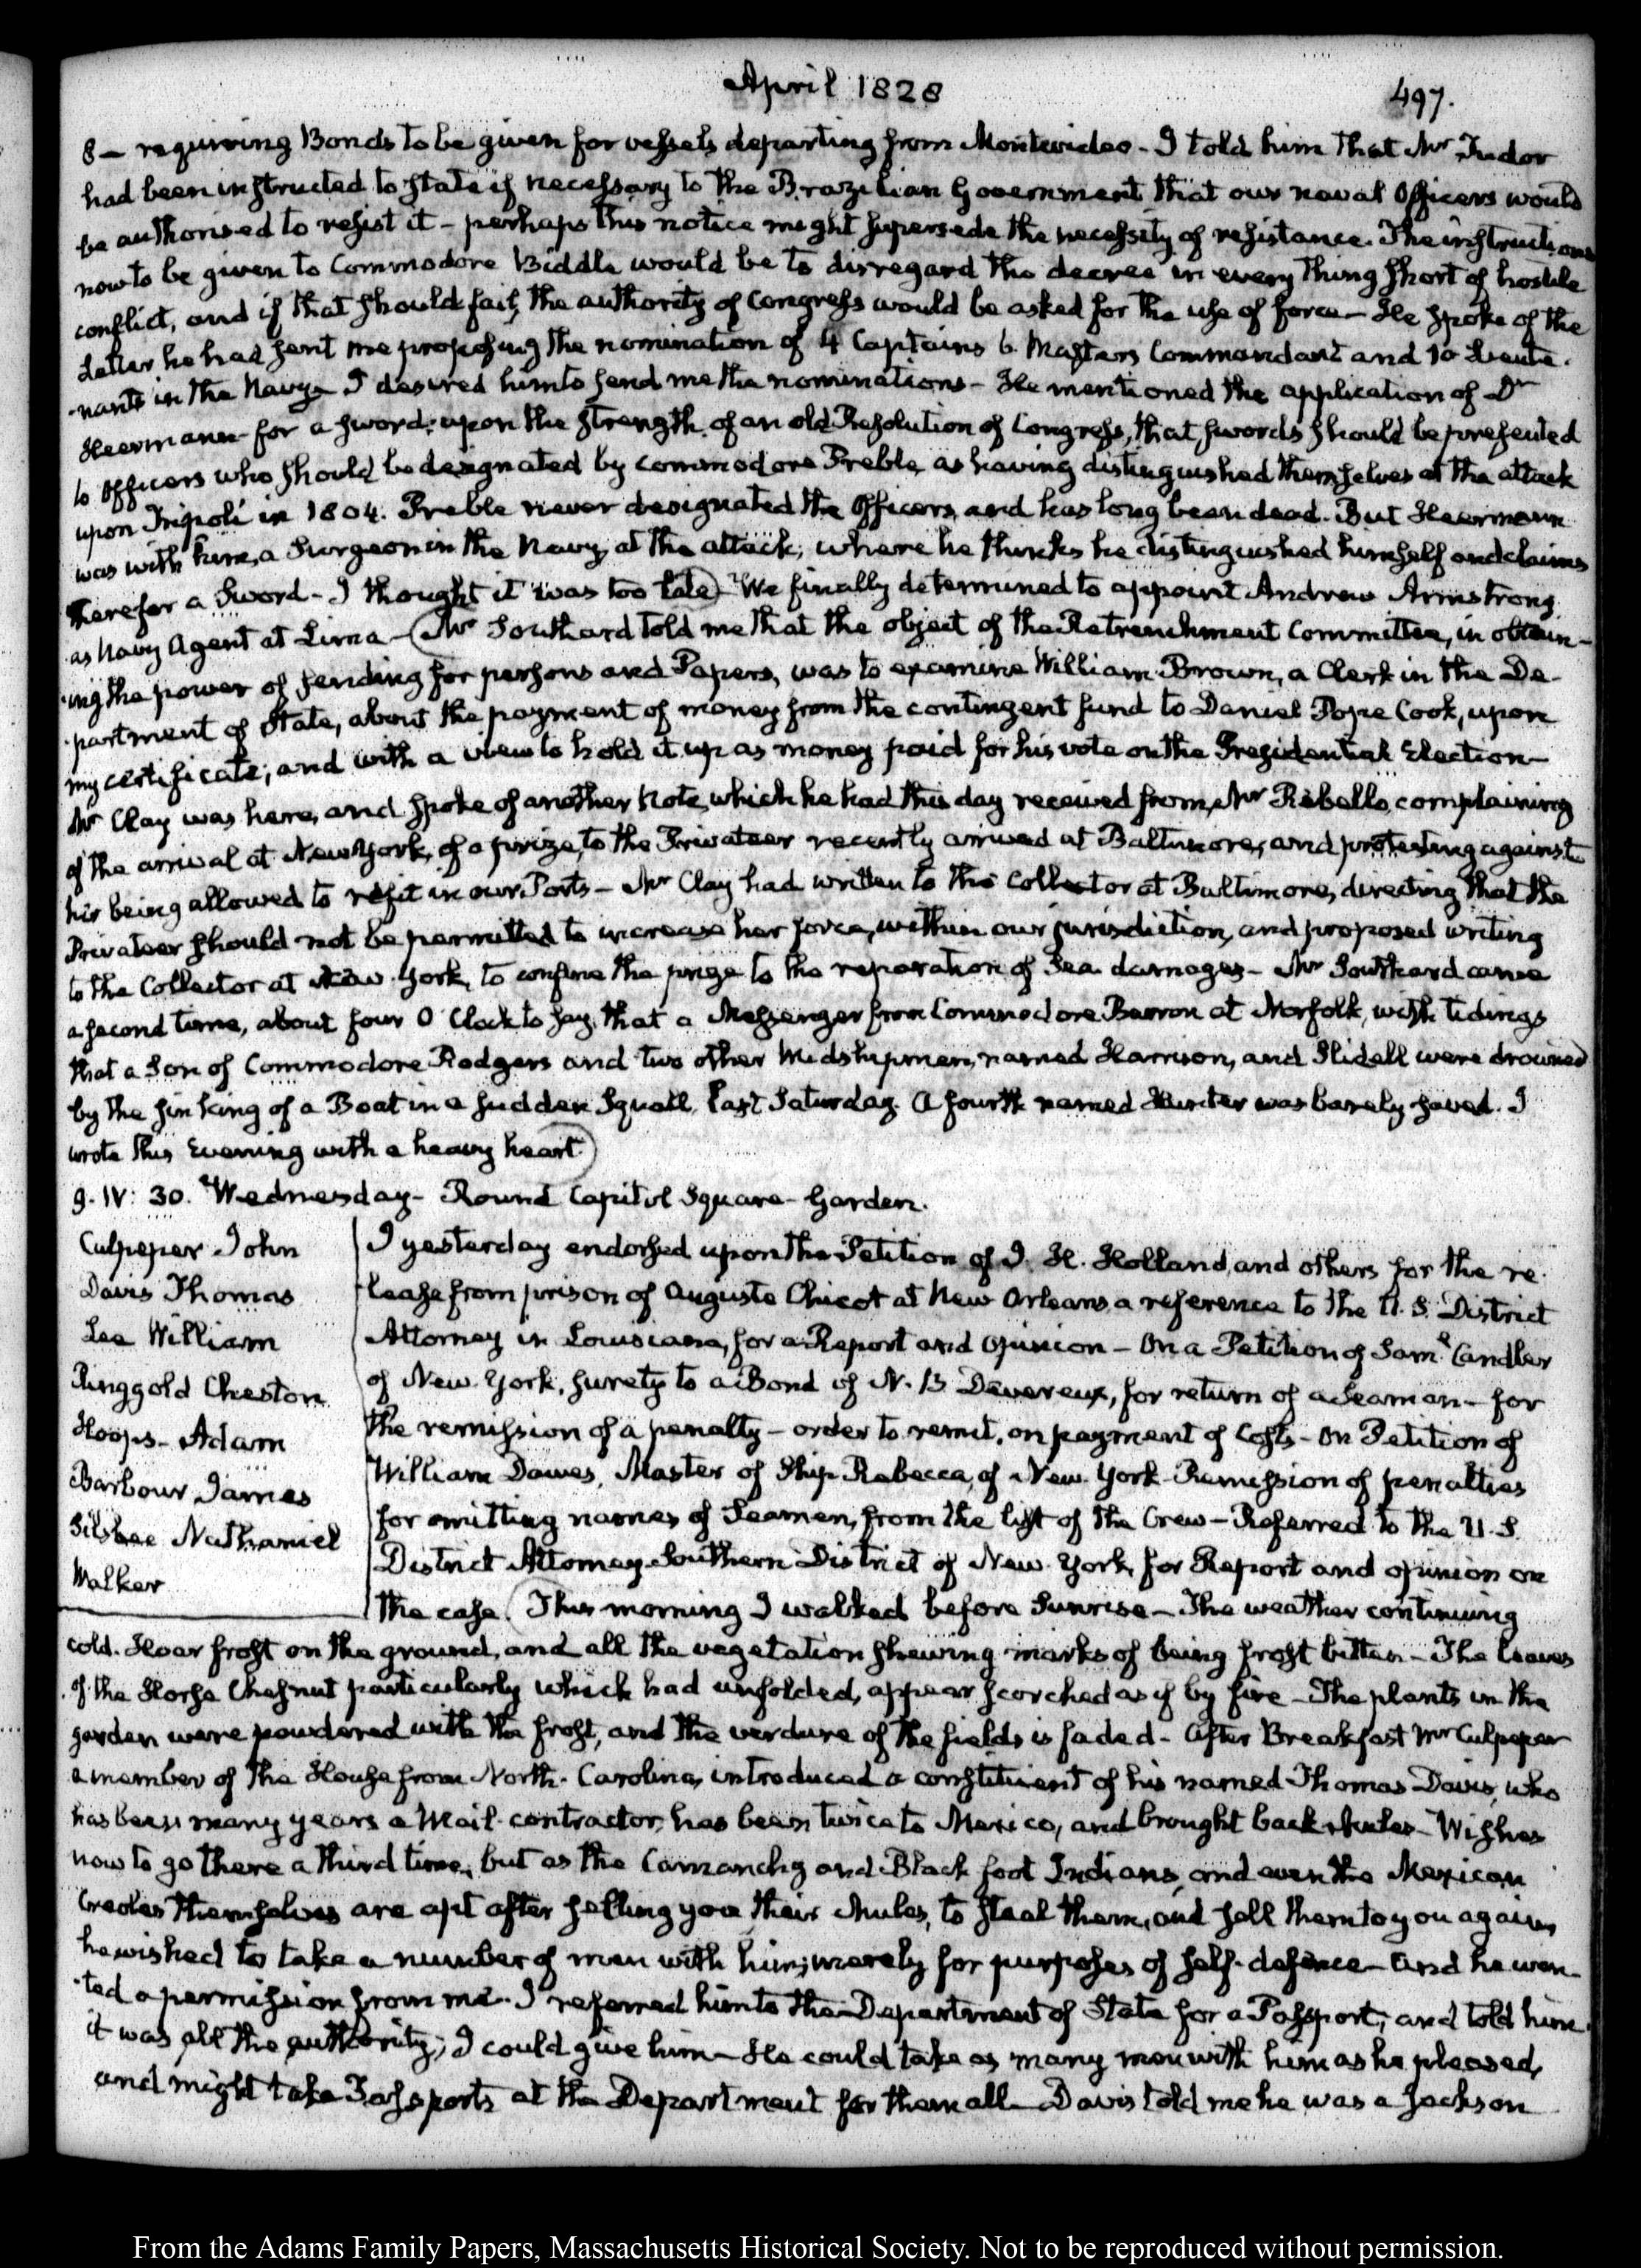 April 1828
497.
8 — requiring Bonds to be given for vessels departing from Montevideo - I told him that Mr Tudor
had been instructed to state if necessary to the Brazilian Government that our naval Officers would
be authorised to resist it - perhaps this notice might supersede the necessity of resistance. The instructions
now to be given to Commodore Biddle would be to disregard the decree in every thing short of hostile
conflict, and if that should fail, the authority of Congress would be asked for the use of force - He spoke of the
Letter he had sent me proposing the nomination of 4 Captains 6 Masters Commandant and 10 Lieute-
-nants in the Navy - I desired him to send me the nominations - He mentioned the application of Dr
Heermann for a sword; upon the strength of an old Resolution of Congress, that swords should be presented
to Officers who should be designated by Commodore Preble, as having distinguished themselves at the attack
upon Tripoli in 1804. Preble never designated the Officers, and has long been dead. But Heermann
was with him, a Surgeon in the Navy, at the attack; where he thinks he distinguished himself and claims
therefor a Sword - I thought it was too late) We finally determined to appoint Andrew Armstrong
as Navy Agent at Lima - (Mr Southard told me that the object of the Retrenchment Committee, in obtain-
-ing the power of sending for persons and Papers, was to examine William Brown, a Clerk in the De-
-partment of State, about the payment of money from the contingent fund to Daniel Pope Cook, upon
my certificate; and with a view to hold it up as money paid for his vote on the Presidential Election -
Mr Clay was here, and spoke of another Note, which he had this day received from Mr Rebello, complaining
of the arrival at New York, of a prize, to the Privateer recently arrived at Baltimore, and protesting against
his being allowed to refit in our Ports - Mr Clay had written to the Collector at Baltimore, directing that the
Privateer should not be permitted to increase her force, within our jurisdiction, and proposed writing
to the Collector at New York, to confine the prize to the reparation of Sea damages - Mr Southard came
a second time, about four O'Clock to say that a Messenger from Commodore Barron at Norfolk, with tidings
that a Son of Commodore Rodgers and two other Midshipmen, named Harrison, and Slidell were drowned
by the sinking of a Boat in a sudden Squall, last Saturday. A fourth named Hunter was barely saved. I
wrote this Evening with a heavy heart.)
9. IV: 30. Wednesday - Round Capitol Square - Garden.
Culpeper John
Davis Thomas
Lee William
Ringgold Cheston
Hoops - Adam
Barbour James
Silsbee Nathaniel
Walker
I yesterday endorsed upon the Petition of J. H. Holland, and others for the re-
-lease from prison of Auguste Chicot at New Orleans a reference to the U.S. District
Attorney in Louisiana, for a Report and Opinion - On a Petition of Saml Candler
of New York, surety to a Bond of N. B Devereux, for return of a Seaman - for
the remission of a penalty - order to remit, on payment of Costs - On Petition of
William Dawes, Master of Ship Rebecca, of New York - Remission of penalties
for omitting names of Seamen, from the list of the Crew - Referred to the U.S.
District Attorney Southern District of New York, for Report and opinion on
the case. (This morning I walked before Sunrise - The weather continuing
cold. Hoar frost on the ground, and all the vegetation shewing marks of being frost bitten - The leaves
of the Horse Chesnut particularly which had unfolded, appear scorched as if by fire - The plants in the
garden were powdered with the frost, and the verdure of the fields is faded - After Breakfast Mr Culpeper
a member of the House from North-Carolina, introduced a constituent of his named Thomas Davis, who
has been many years a Mail-contractor, has been twice to Mexico, and brought back Mules - Wishes
now to go there a third time, but as the Camanchy and Black foot Indians, and even the Mexican
Creoles themselves are apt after selling you their Mules, to steal them, and sell them to you again,
he wished to take a number of men with him, merely for purposes of self-defence - and he wan-
-ted a permission from me. I referred him to the Department of State for a Passport, and told him
it was all the authority, I could give him - He could take as many men with him as he pleased,
and might take Passports at the Department for them all - Davis told me he was a Jackson
From the Adams Family Papers, Massachusetts Historical Society. Not to be reproduced without permission.